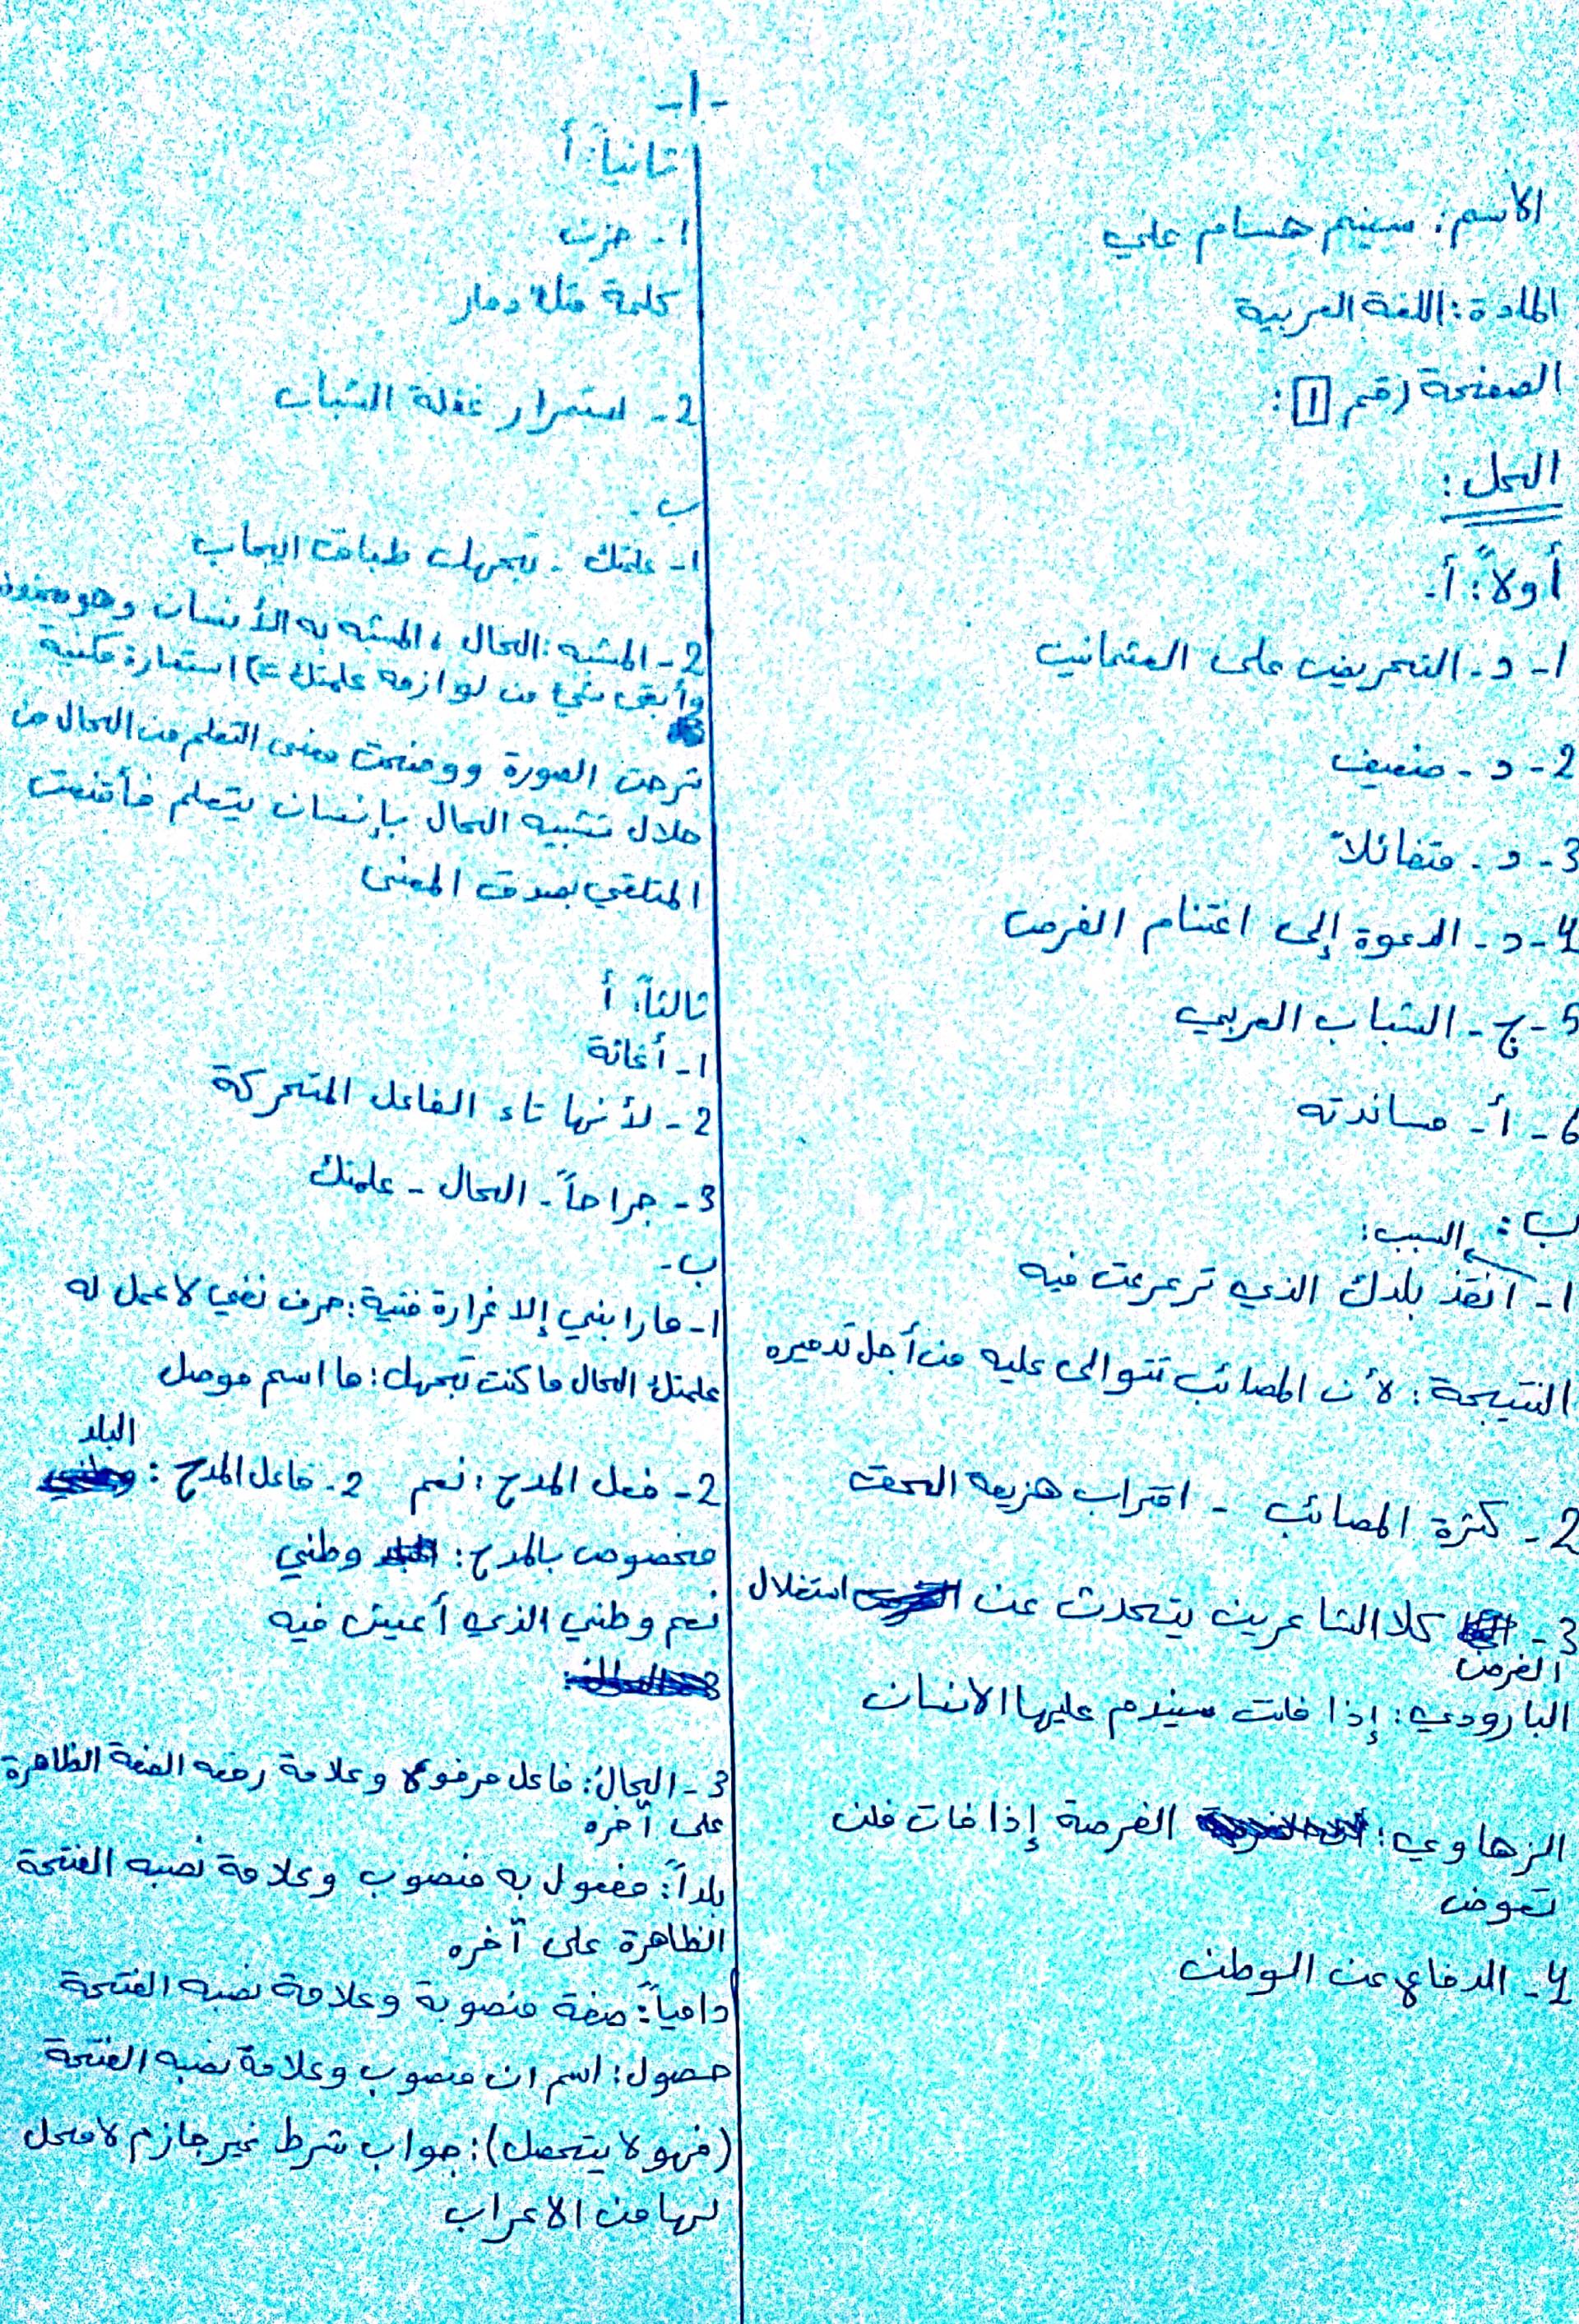 -1-
الاسم: سينم حسام علي
المادة: اللغة العربية
الصفحة رقم 1:
الحل:
أولاً: أ-
1- د- التحريض على العثمانيين
2- د- ضعيف
3- د- متفائلاً
4- د- الدعوة إلى اغتنام الفرص
5- ج- الشباب العربي
6- أ- مساندته
ب: السبب:
1- أنقذ بلدك الذي ترعرعت فيه
النتيجة: لأن المصائب تتوالى عليه من أجل تدميره
2- كثرة المصائب - اقتراب هزيمه الحق
3- كلا الشاعرين يتحدث عن استغلال
الفرص
البارودي: إذا فاتت سيندم عليها الانسان
الزهاوي: الفرصة إذا فات فلن
تعوض
4- الدفاع عن الوطن
ثانياً: أ
1- حزن
كلمة مثل دمار
2- استمرار غفلة الشباب
ب-
1- علمتك - تجهل طباق ايجاب
2- المشبه: الحال، المشبه به الأنسان وهو محذوف
وأبقى شيء من لوازمه علمتك => استعارة مكنية
شرحت الصورة ووضحت معنى التعلم من الحال من
خلال تشبيه الحال بإنسان يتعلم فأقنعت
المتلقي بصدق المعنى
ثالثاً: أ
1- أغاثة
2- لأنها تاء الفاعل المتحركة
3- جراحاً - الحال - علمتك
ب-
1- ما رابني إلا غرارة فتية: حرف نفي لا عمل له
علمتك الحال ما كنت تجهل: ما اسم موصل
2- فعل المدح: نعم 2- فاعل المدح: البلد
مخصوص بالمدح: وطني
نعم وطني الذي أعيش فيه
3- الحالُ: فاعل مرفوع وعلامة رفعه الضمة الظاهرة
على آخره
بلداً: مفعول به منصوب وعلامة نصبه الفتحة
الظاهرة على آخره
دامياً: صفة منصوبة وعلامة نصبه الفتحة
حصول: اسم ان منصوب وعلامة نصبه الفتحة
(فهو لا يتحصل): جواب شرط غير جازم لا محل
لها من الاعراب